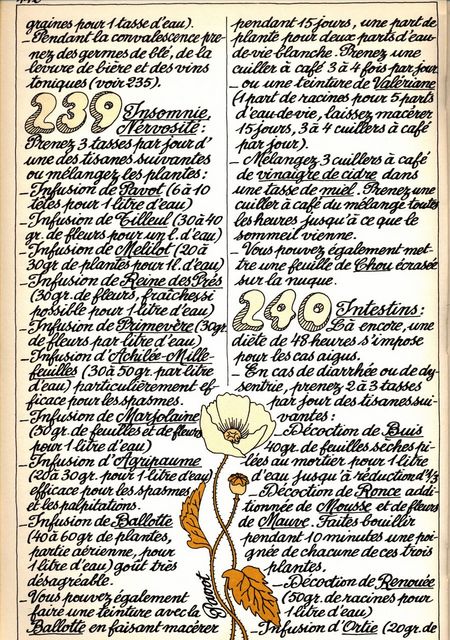 graines pour 1 tasse d'eau).
_ Pendant la convalescence pre-
nez des germes de blé, de la
levure de bière et des vins
toniques (voir 235).
239 Insomnie,
Nervosité :
Prenez 3 tasses par jour d'
une des tisanes suivantes
ou mélangez les plantes :
_ Infusion de Pavot (6 à 10
têtes pour 1 litre d'eau)
_ Infusion de Tilleul (30 à 40
gr. de fleurs pour un l. d'eau)
_ Infusion de Mélilot (20 à
30 gr. de plantes pour 1 l. d'eau)
_ Infusion de Reine des Prés
(30 gr. de fleurs, fraîches si
possible pour 1 litre d'eau)
_ Infusion de Primevère (30 gr.
de fleurs par litre d'eau)
_ Infusion d'Achilée-Mille-
feuilles (30 à 50 gr. par litre
d'eau) particulièrement ef-
ficace pour les spasmes.
_ Infusion de Marjolaine
(50 gr. de feuilles et de fleurs
pour 1 litre d'eau)
_ Infusion d'Agripaume
(20 à 30 gr. pour 1 litre d'eau)
efficace pour les spasmes
et les palpitations.
_ Infusion de Ballotte
(40 à 60 gr de plantes,
partie aérienne, pour
1 litre d'eau) goût très
désagréable.
_ Vous pouvez également
faire une teinture avec la
Ballotte en faisant macérer
pendant 15 jours, une part de
plante pour deux parts d'eau-
de-vie blanche. Prenez une
cuiller à café 3 à 4 fois par jour
_ ou une teinture de Valériane
(1 part de racines pour 5 parts
d'eau-de-vie, laissez macérer
15 jours, 3 à 4 cuillers à café
par jour).
_ Mélangez 3 cuillers à café
de vinaigre de cidre dans
une tasse de miel. Prenez une
cuiller à café du mélange toutes
les heures jusqu'à ce que le
sommeil vienne.
_ Vous pouvez également met-
tre une feuille de Chou écrasée
sur la nuque.
240 Intestins :
Là encore, une
diète de 48 heures s'impose
pour les cas aigus.
_ En cas de diarrhée ou de dy-
sentrie, prenez 2 à 3 tasses
par jour des tisanes sui-
vantes :
_ Décoction de Buis
40 gr. de feuilles sèches pi-
lées au mortier pour 1 litre
d'eau jusqu'à réduction d'1/3
_ Décoction de Ronce addi-
tionnée de Mousse et de fleurs
de Mauve. Faites bouillir
pendant 10 minutes une poi-
gnée de chacune de ces trois
plantes.
_ Décoction de Renouée
(50 gr. de racines pour
1 litre d'eau)
_ Infusion d'Ortie (20 gr. de
Pavot